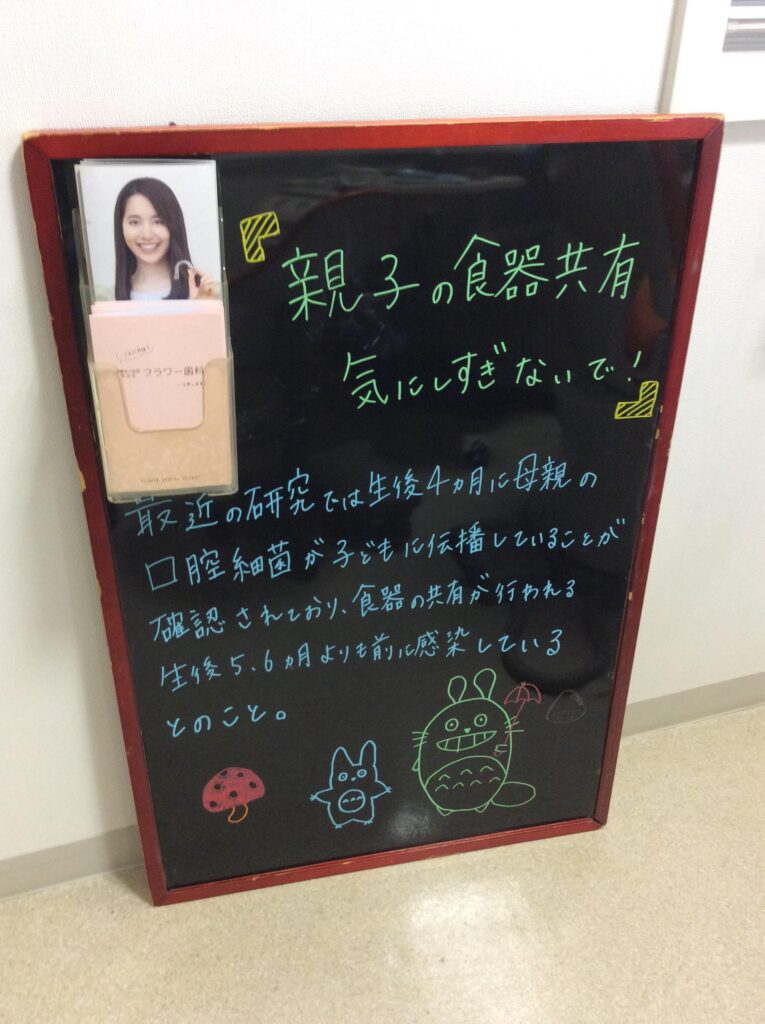 『親子の食器共有
気にしすぎないで！』
最近の研究では生後4ヵ月に母親の
口腔細菌が子どもに伝播していることが
確認されており、食器の共有が行われる
生後5、6ヵ月よりも前に感染している
とのこと。
こんにちは！
フラワー歯科
FLOWER DENTAL CLINIC